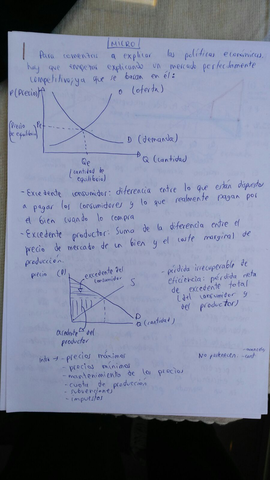 MICRO
Para comenzar a explicar las políticas económicas,
hay que empezar explicando un mercado perfectamente
competitivo, ya que se basan en él:
P (Precio)
O (oferta)
(Precio de equilibrio) Pe
D (demanda)
Qe
Q (cantidad)
(cantidad de equilibrio)
- Excedente consumidor: diferencia entre lo que están dispuestos
a pagar los consumidores y lo que realmente pagan por
el bien cuando lo compra
- Excedente productor: Suma de la diferencia entre el
precio de mercado de un bien y el coste marginal de
producción.
precio (P)
excedente del consumidor
S
D
Q (cantidad)
excedente del productor
- pérdida irrecuperable de
eficiencia: pérdida neta
de excedente total
(del consumidor y
del productor)
- precios máximos
- precios mínimos
- mantenimiento de los precios
- cuota de producción
- subvenciones
- impuestos
No